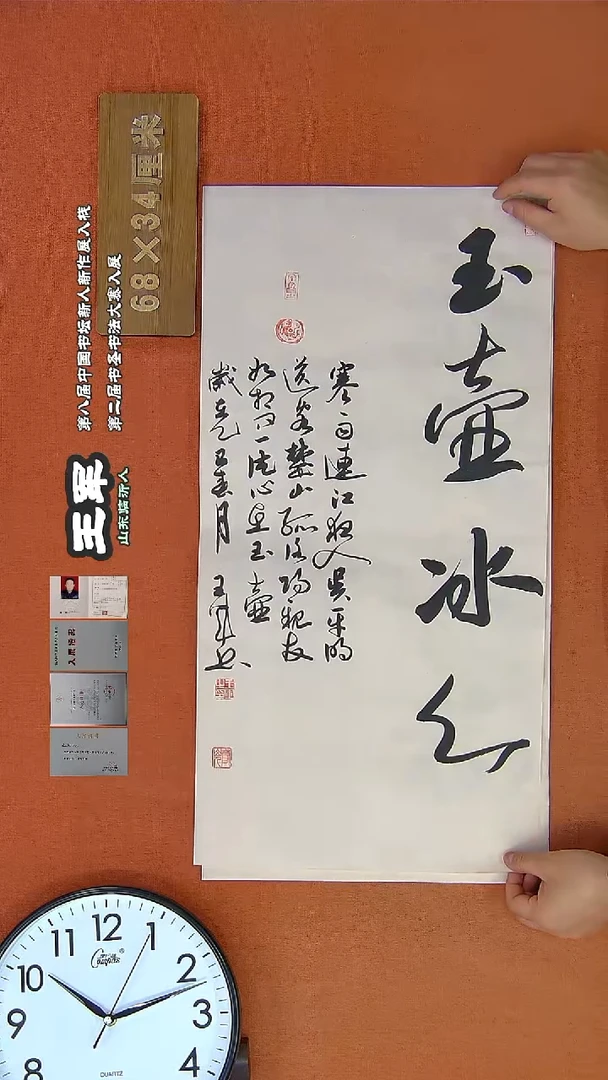 玉壺冰心
寒雨連江夜入吳平明
送客楚山孤洛陽親友
如相問一片冰心在玉壺
歲在乙巳春月 王军书
68×34厘米
第八届中国书坛新人新作展入展
第二届书圣书法大赛入展
王军
山东临沂人
12
1
2
3
4
8
9
10
11
QUARTZ